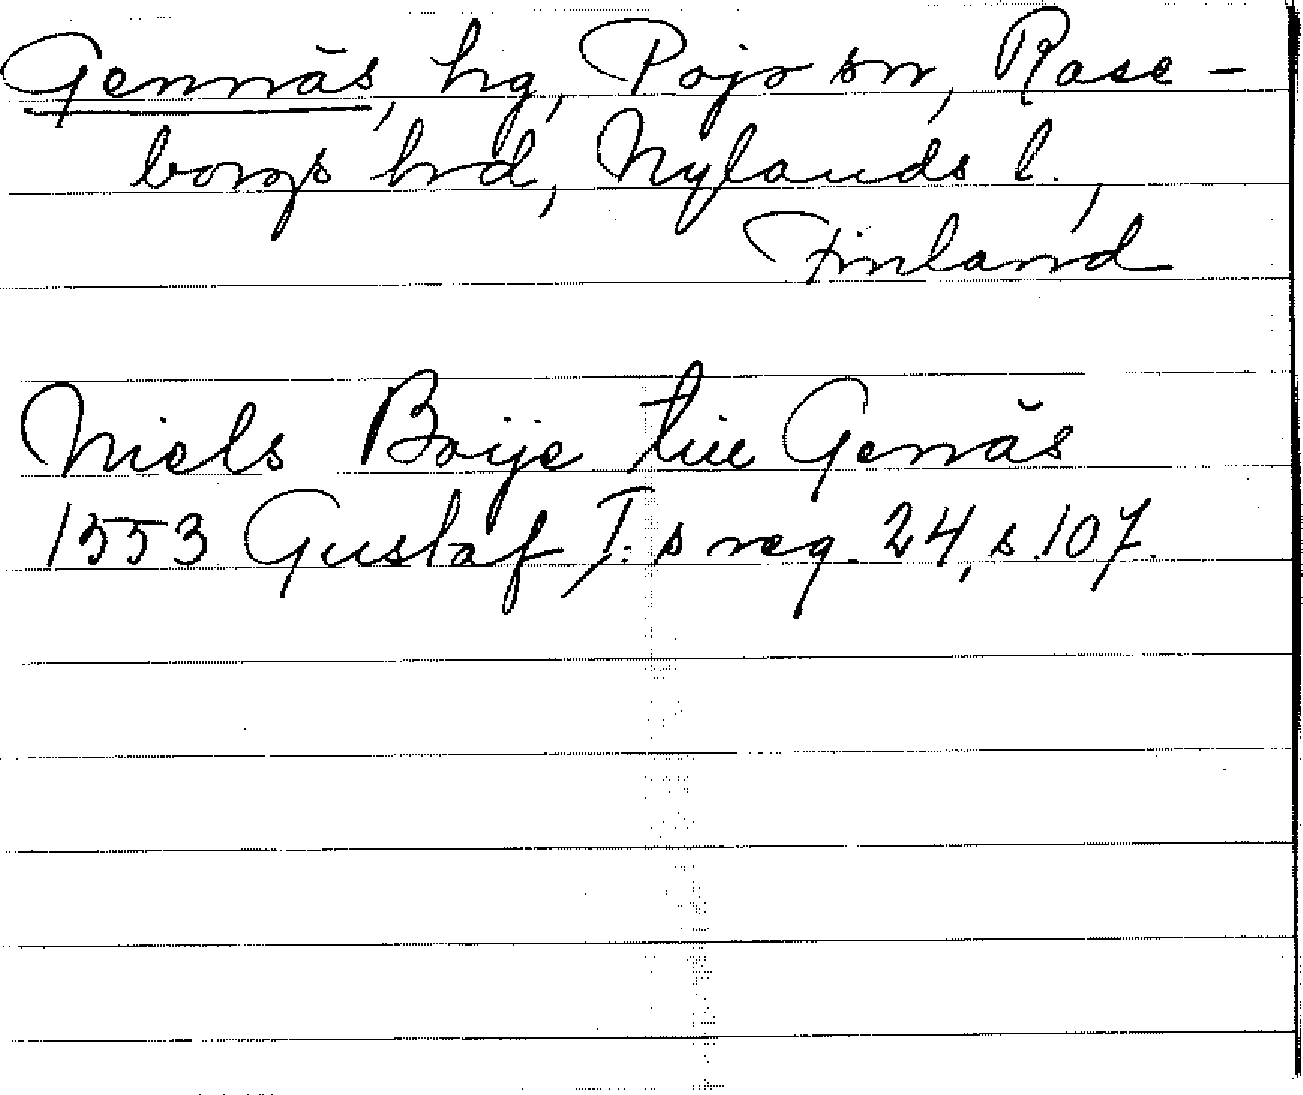 Gennäs, hg, Pojo sn, Rase-
borgs hrd, Nylands l.,
Finland
Niels Boije till Genäs
1553 Gustaf I:s reg. 24, s. 107.